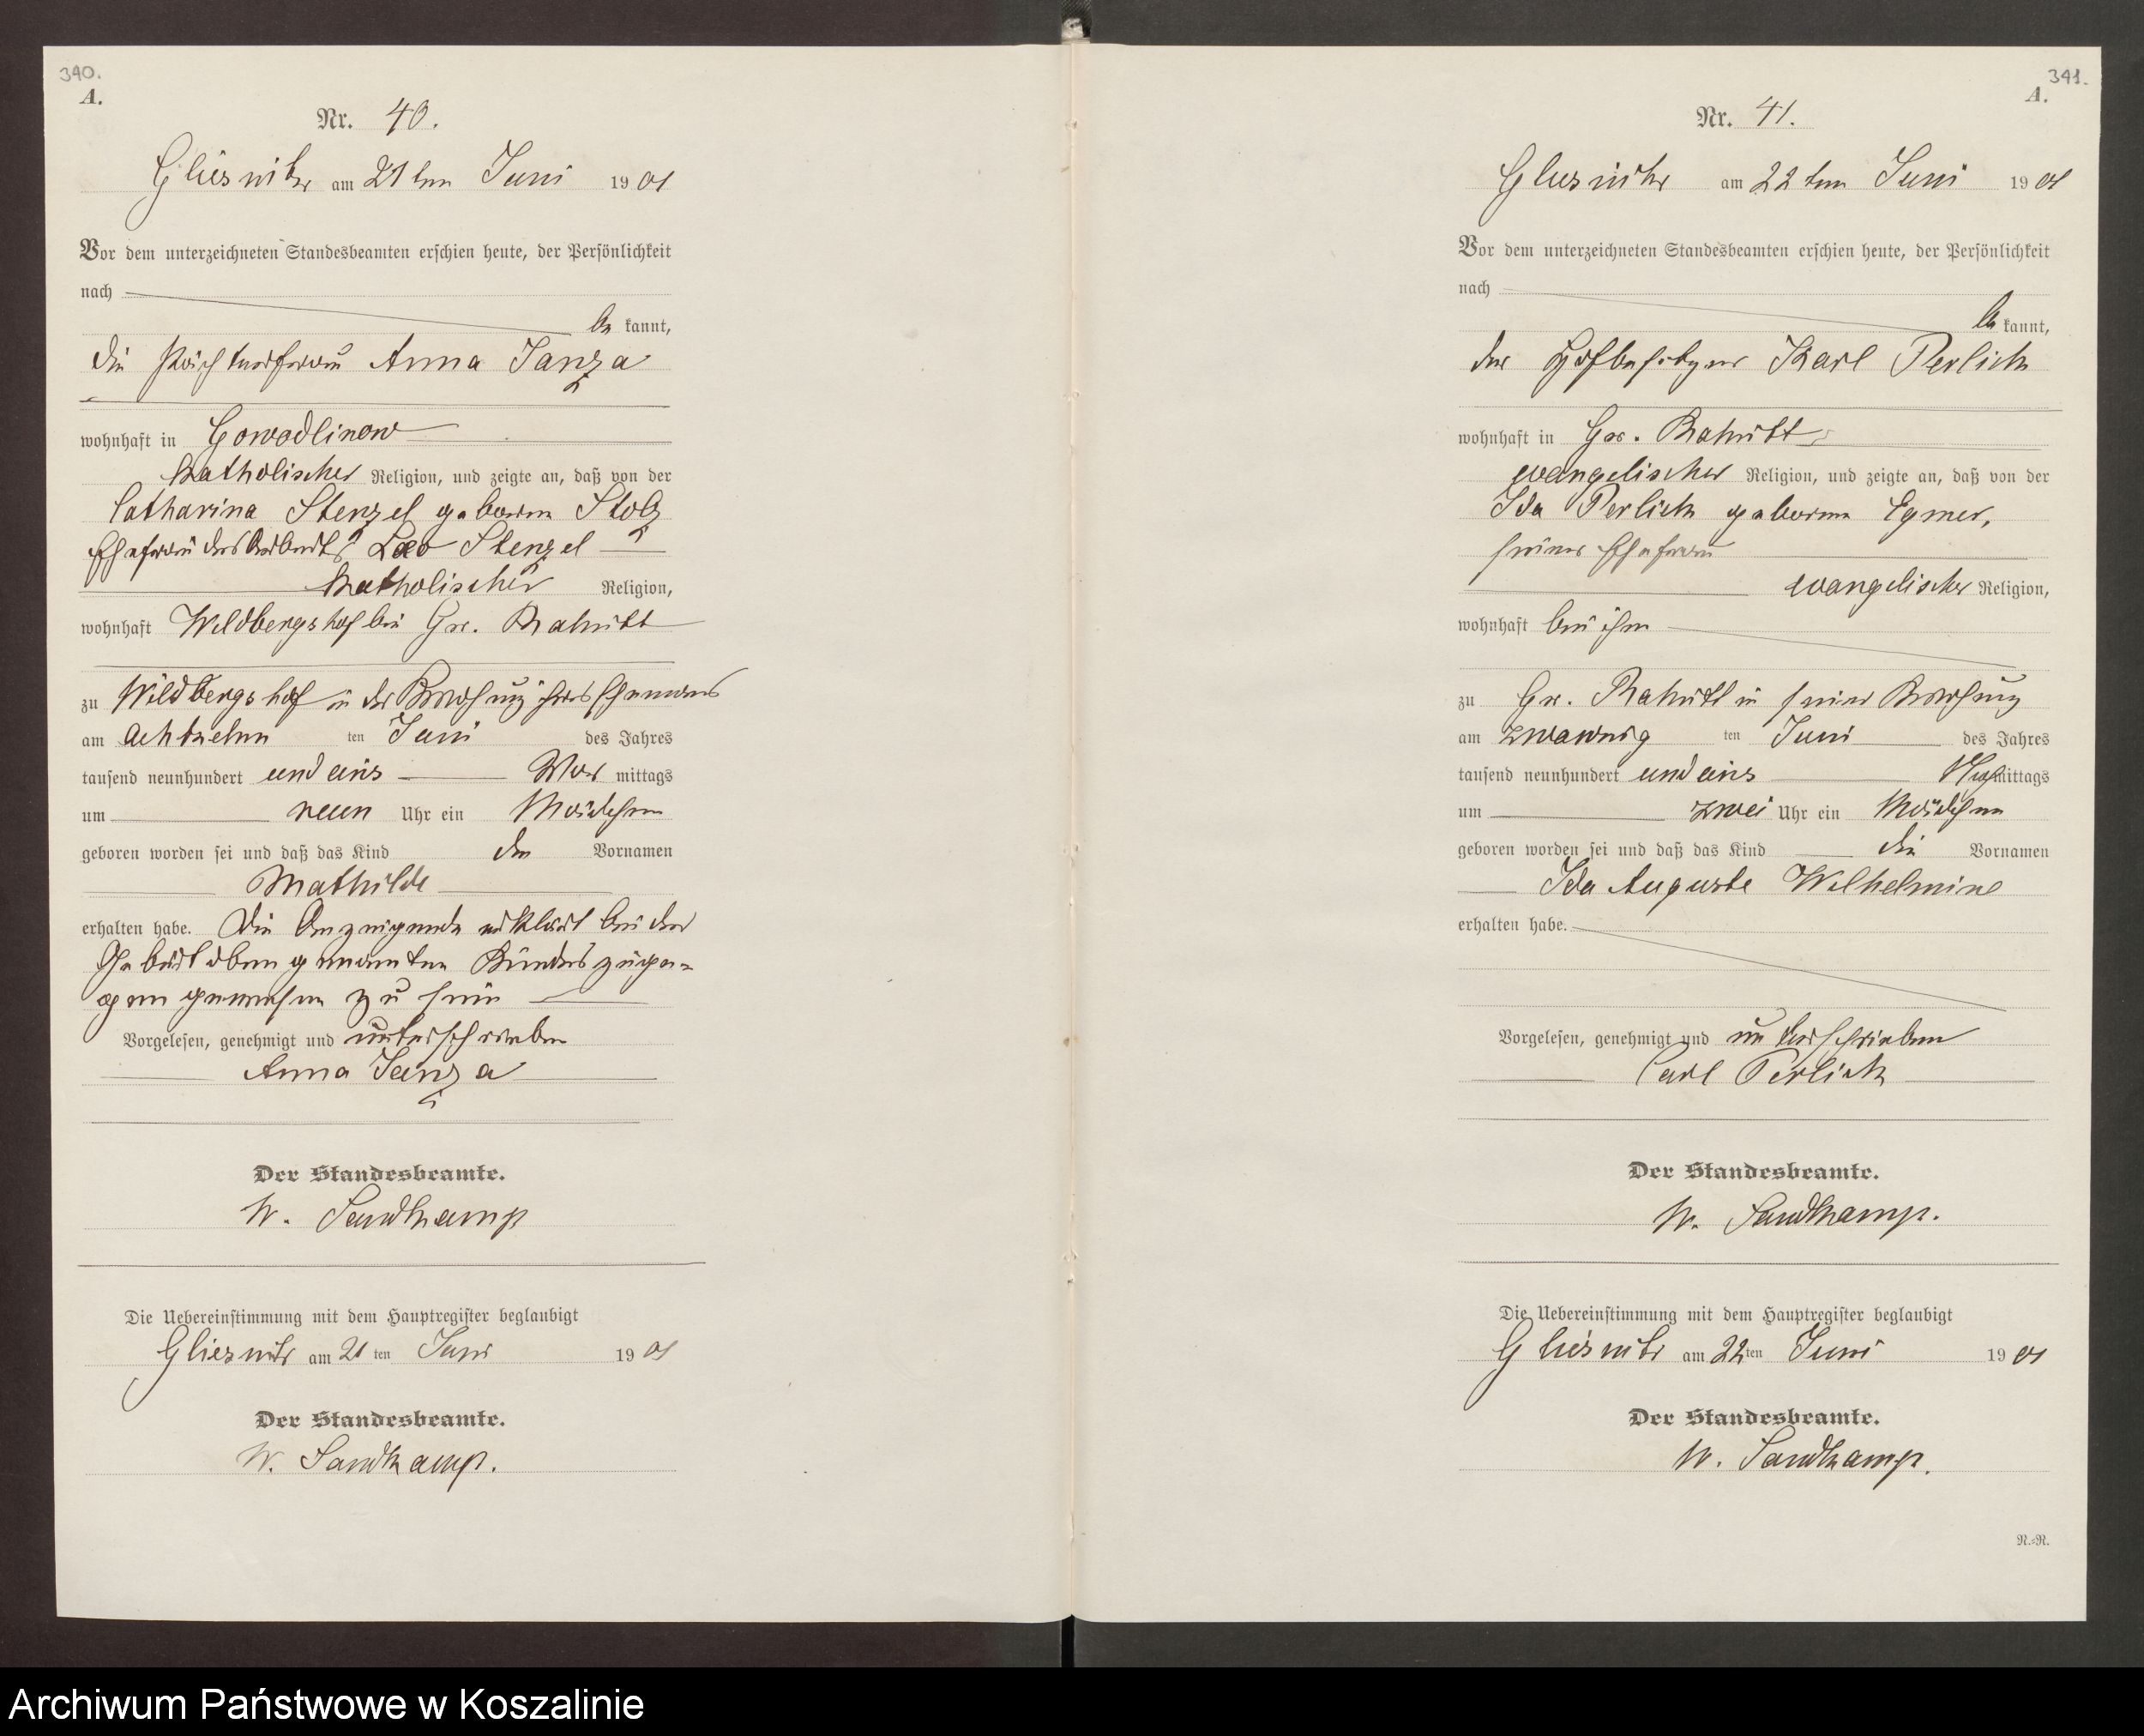 340.
A.
Nr. 40.
Gliesnitz am 21ten Juni 1901
Vor dem unterzeichneten Standesbeamten erschien heute, der Persönlichkeit
nach
be kannt,
die Pächterfrau Anna Janza
wohnhaft in Gowodlinow
katholischer Religion, und zeigte an, daß von der
Catharina Stenzel geboren Stolz
Ehefrau des Arbeiters Leo Stenzel
katholischer Religion,
wohnhaft Wildbergshof bei Gr. Rakitt
zu Wildbergshof in der Wohnung ihres Ehemanns
am achtzehn ten Juni des Jahres
tausend neunhundert und eins Vor mittags
um neun Uhr ein Mädchen
geboren worden sei und daß das Kind den Vornamen
Mathilde
erhalten habe. Die Anzeigende erklärt bei der
Geburt oben genannten Kindes zuge=
gen gewesen zu sein
Vorgelesen, genehmigt und unterschrieben
Anna Janza
Der Standesbeamte.
W. Sandkamp
Die Uebereinstimmung mit dem Hauptregister beglaubigt
Gliesnitz am 21 ten Juni 1901
Der Standesbeamte.
W. Sandkamp.
341.
A.
Nr. 41.
Gliesnitz am 22ten Juni 1901
Vor dem unterzeichneten Standesbeamten erschien heute, der Persönlichkeit
nach
be kannt,
der Hofbesitzer Karl Perlick
wohnhaft in Gr. Rakitt
evangelischer Religion, und zeigte an, daß von der
Ida Perlick geborene Egmer,
seiner Ehefrau
evangelischer Religion,
wohnhaft bei ihm
zu Gr. Rakitt in seiner Wohnung
am zwanzig ten Juni des Jahres
tausend neunhundert und eins Nachmittags
um zwei Uhr ein Mädchen
geboren worden sei und daß das Kind die Vornamen
Ida Auguste Wilhelmine
erhalten habe.
Vorgelesen, genehmigt und unterschrieben
Carl Perlick
Der Standesbeamte.
W. Sandkamp.
Die Uebereinstimmung mit dem Hauptregister beglaubigt
Gliesnitz am 22ten Juni 1901
Der Standesbeamte.
W. Sandkamp.
N.=N.
Archiwum Państwowe w Koszalinie